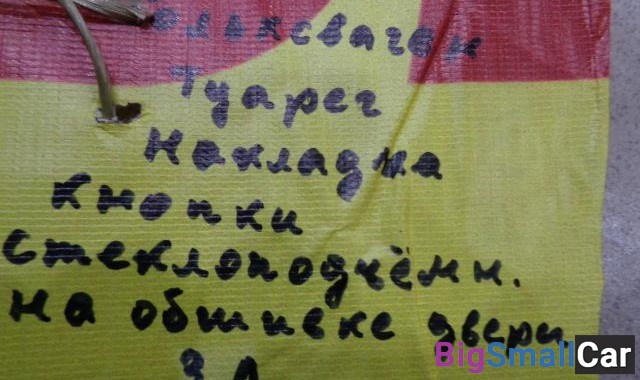 ольксваген
Туарег
Накладка
кнопки
стеклоподъёмн.
на обшивке двери
BigSmallCar